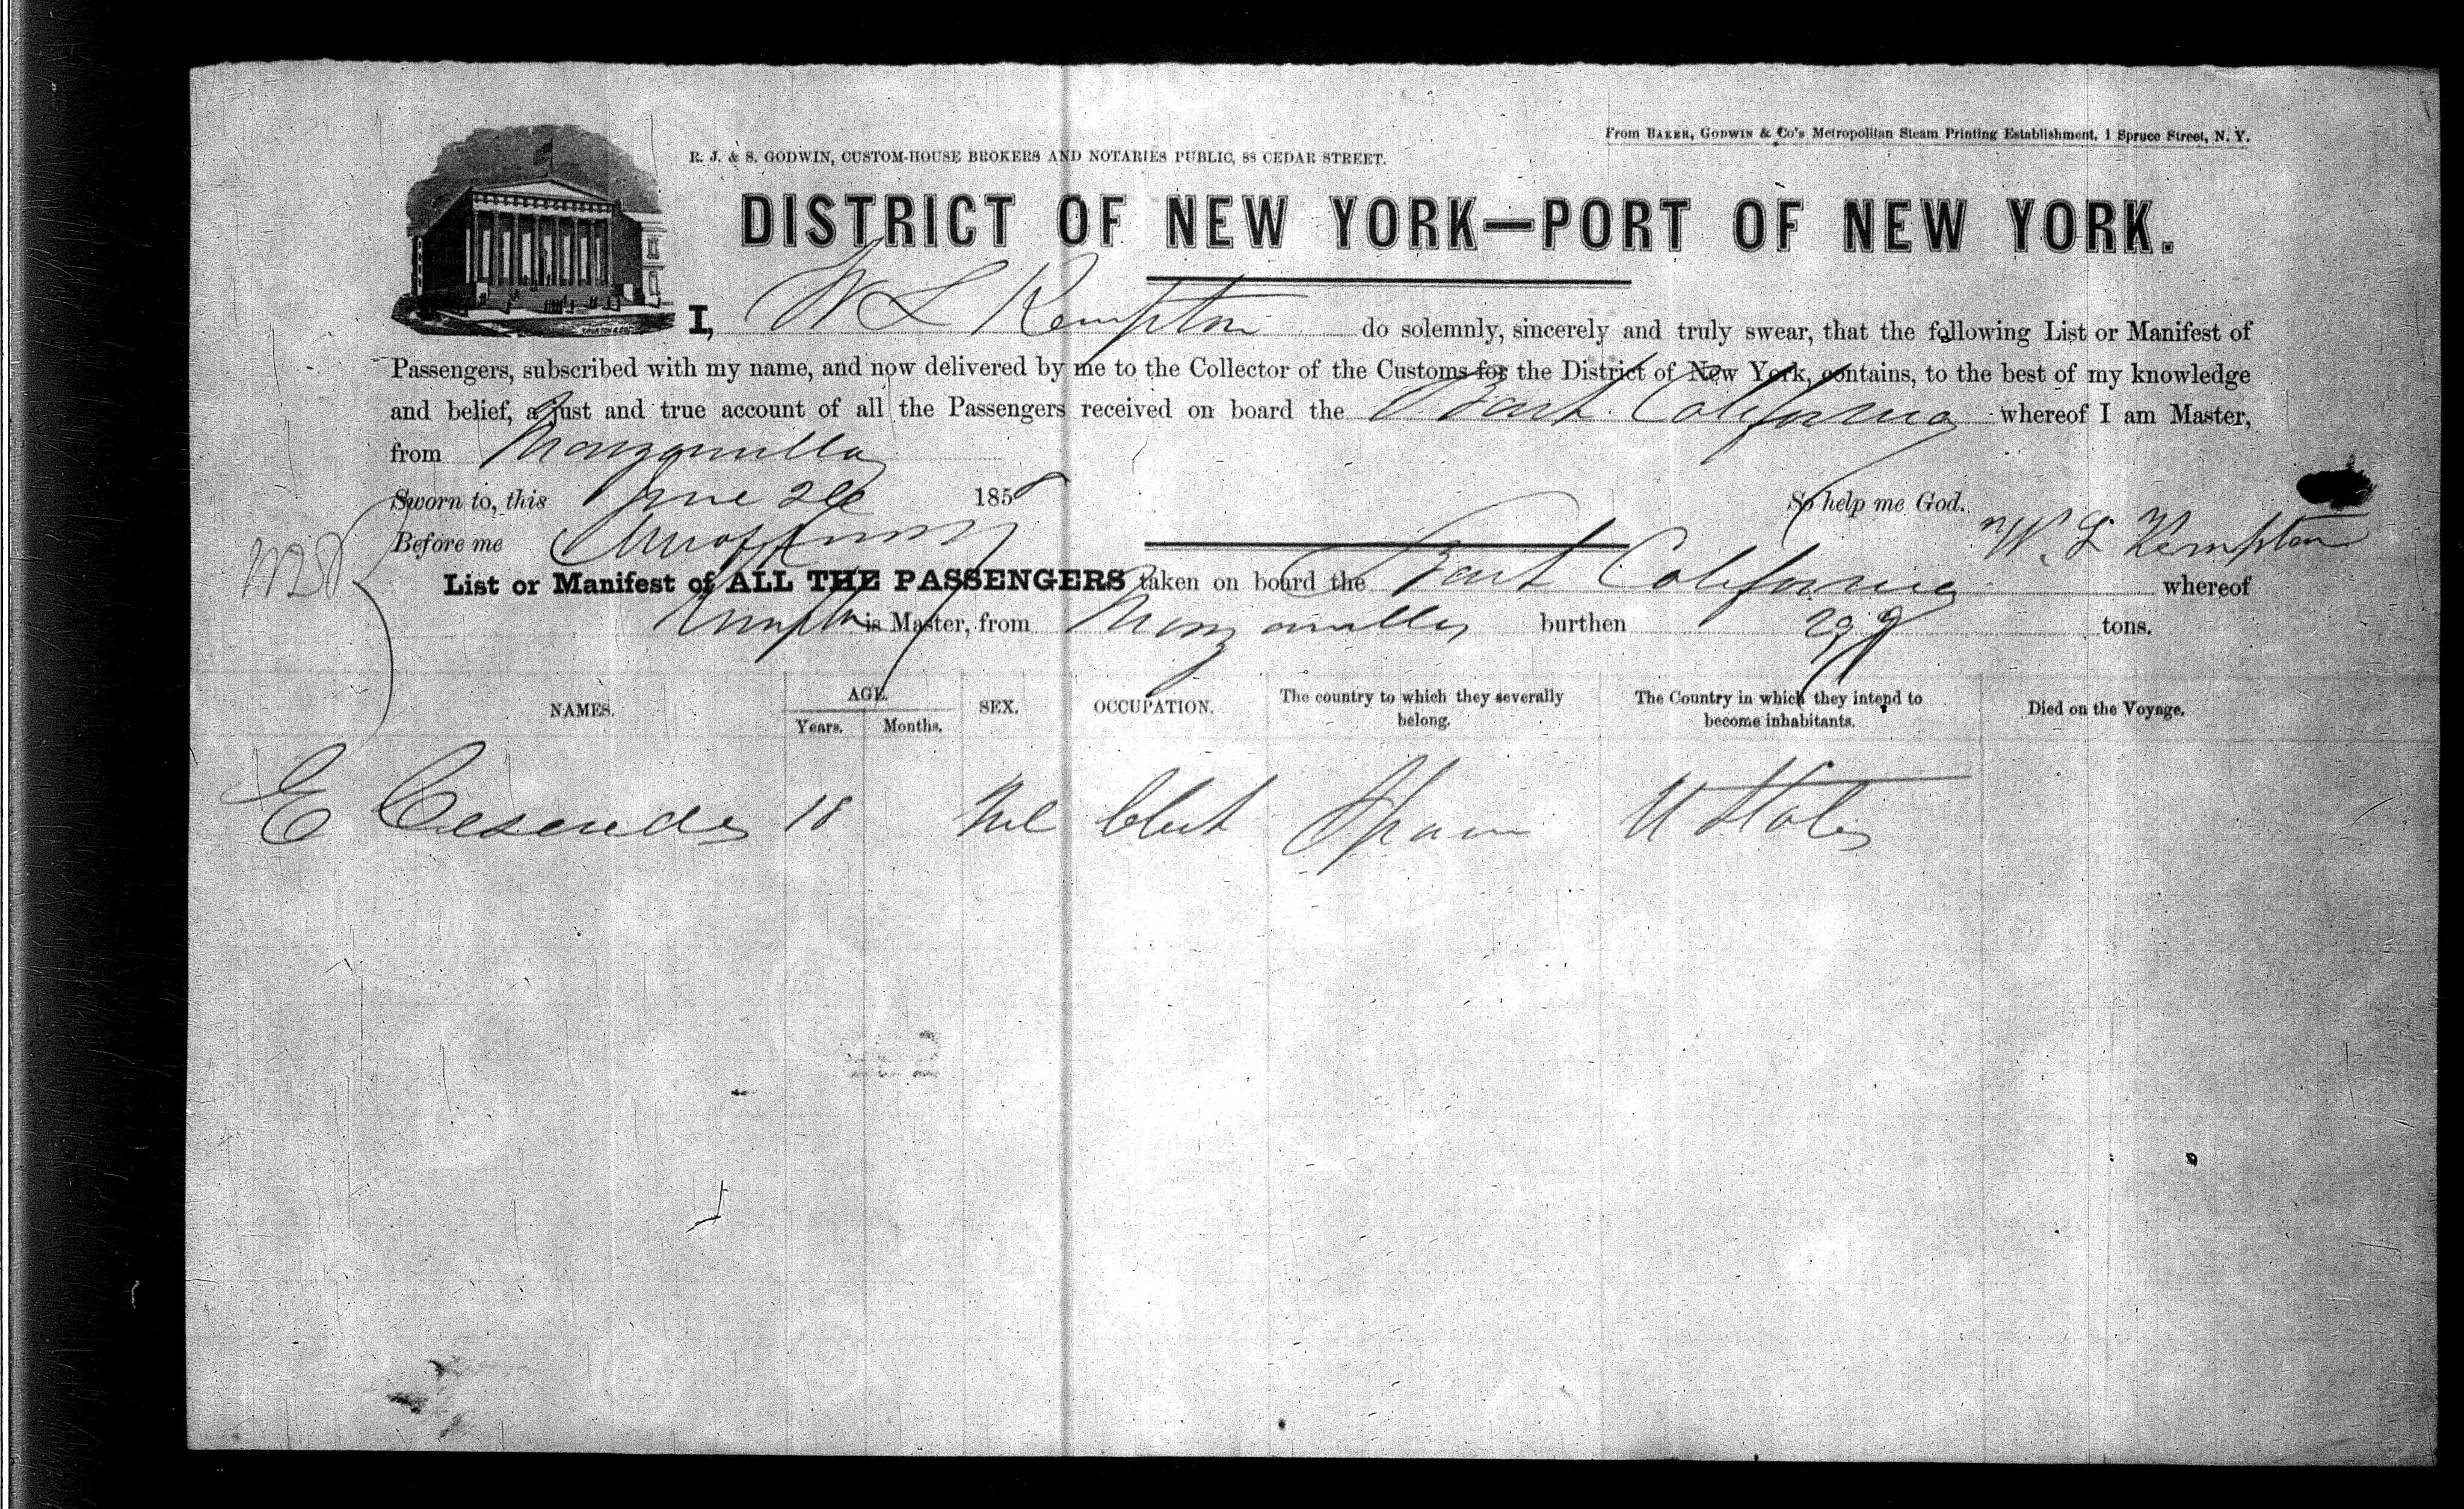 From BAKER, GODWIN & Co's Metropolitan Steam Printing Establishment, 1 Spruce Street, N. Y.
R. J. & S. GODWIN, CUSTOM-HOUSE BROKERS AND NOTARIES PUBLIC, 88 CEDAR STREET.
DISTRICT OF NEW YORK—PORT OF NEW YORK.
I, W L Kempton do solemnly, sincerely and truly swear, that the following List or Manifest of
Passengers, subscribed with my name, and now delivered by me to the Collector of the Customs for the District of New York, contains, to the best of my knowledge
and belief, a just and true account of all the Passengers received on board the Bark California whereof I am Master,
from Manzanilla
Sworn to, this June 26 1858 So help me God.
Before me W. L Kempton
List or Manifest of ALL THE PASSENGERS taken on board the Bark California whereof
Kempton is Master, from Manzanilla burthen 299 tons.
NAMES. AGE. SEX. OCCUPATION. The country to which they severally belong. The Country in which they intend to become inhabitants. Died on the Voyage.
Years. Months.
E 18 Clerk Spain U States